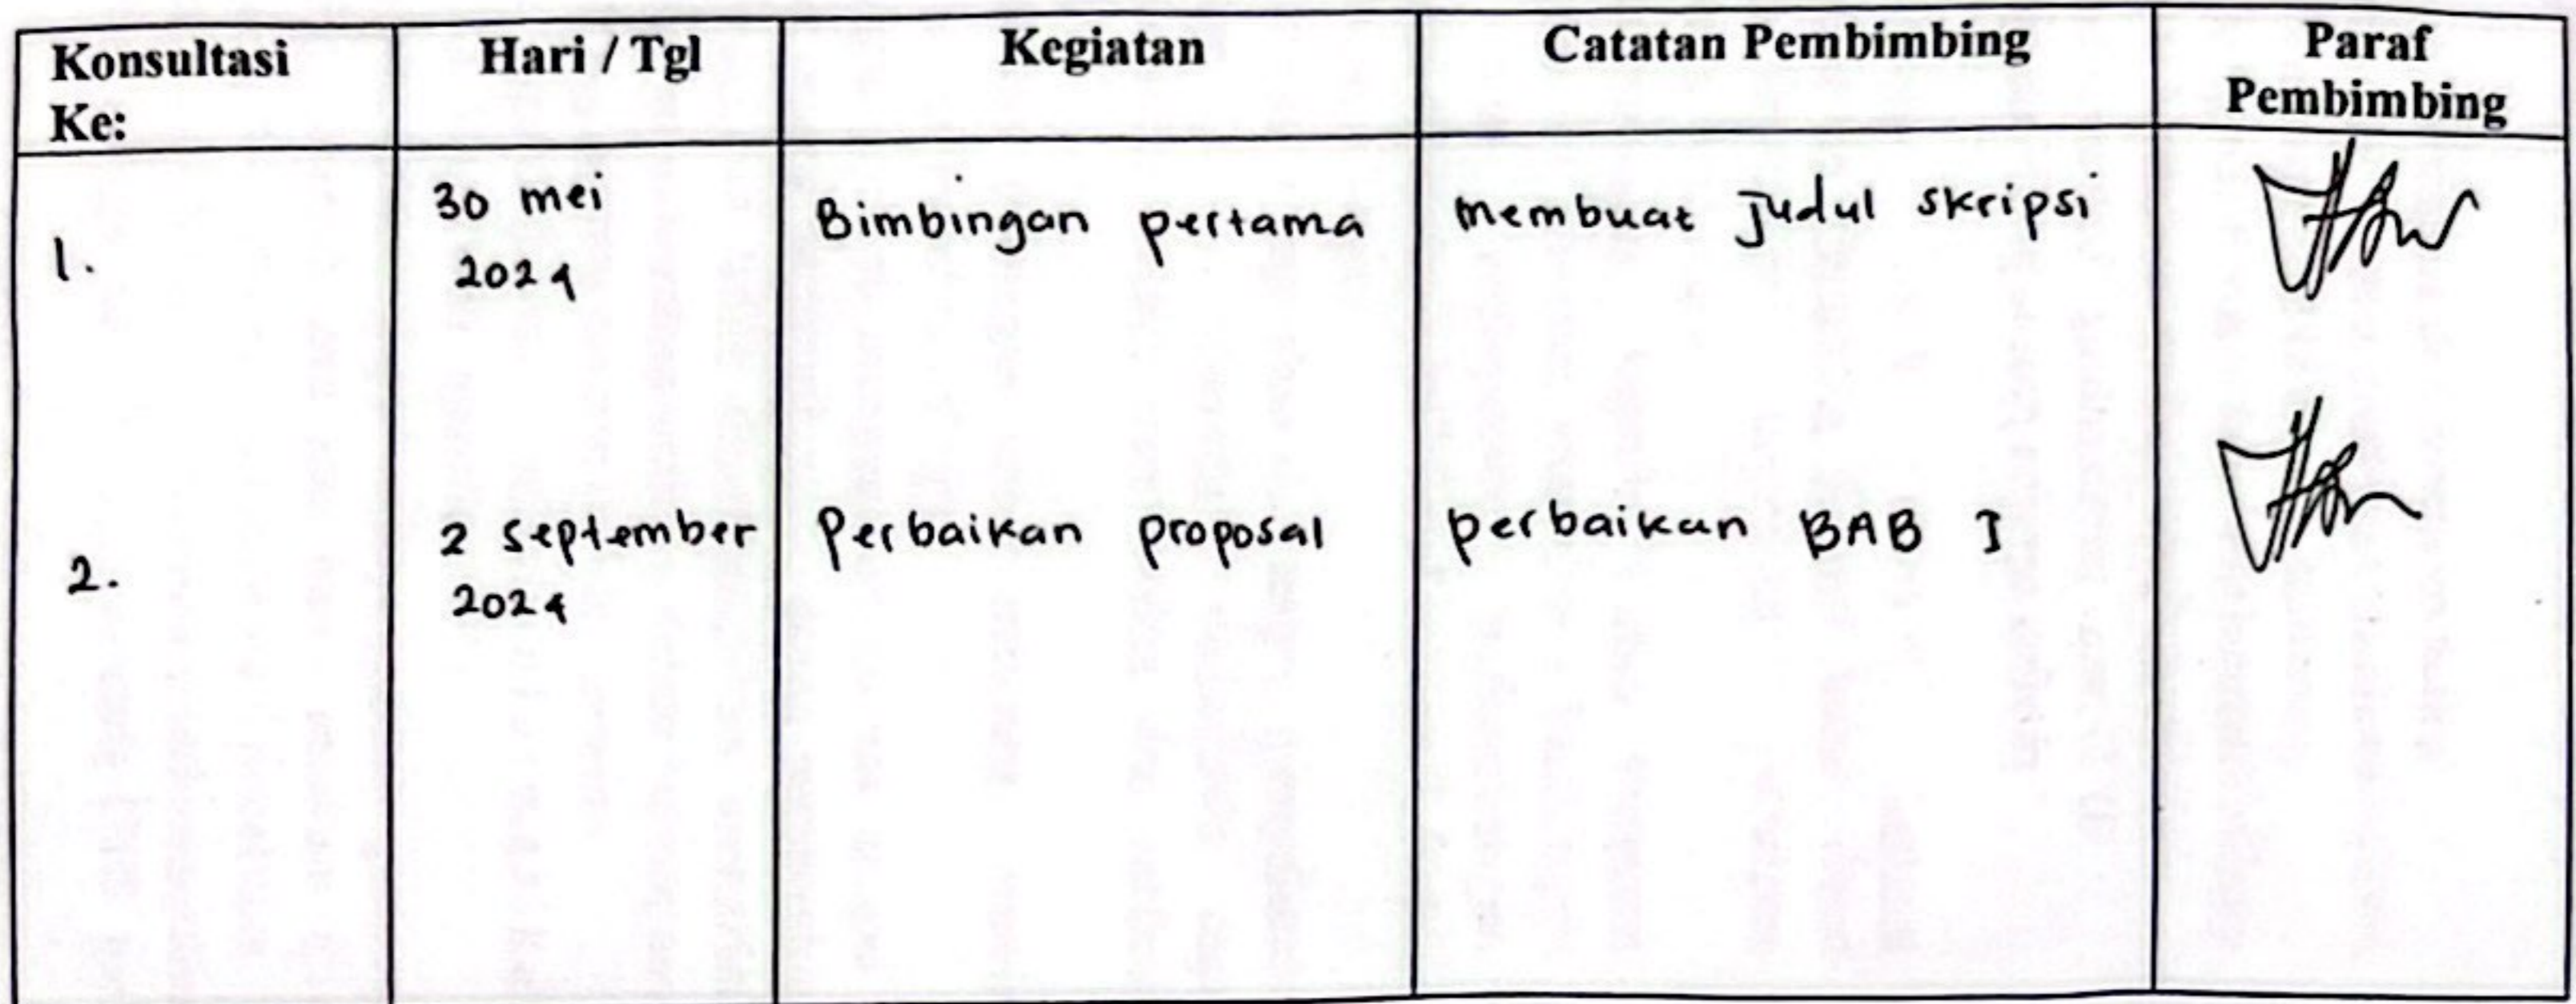 Konsultasi Ke: Hari / Tgl Kegiatan Catatan Pembimbing Paraf Pembimbing
1. 30 mei 2024 Bimbingan pertama membuat judul skripsi
2. 2 september 2024 Perbaikan proposal perbaikan BAB I